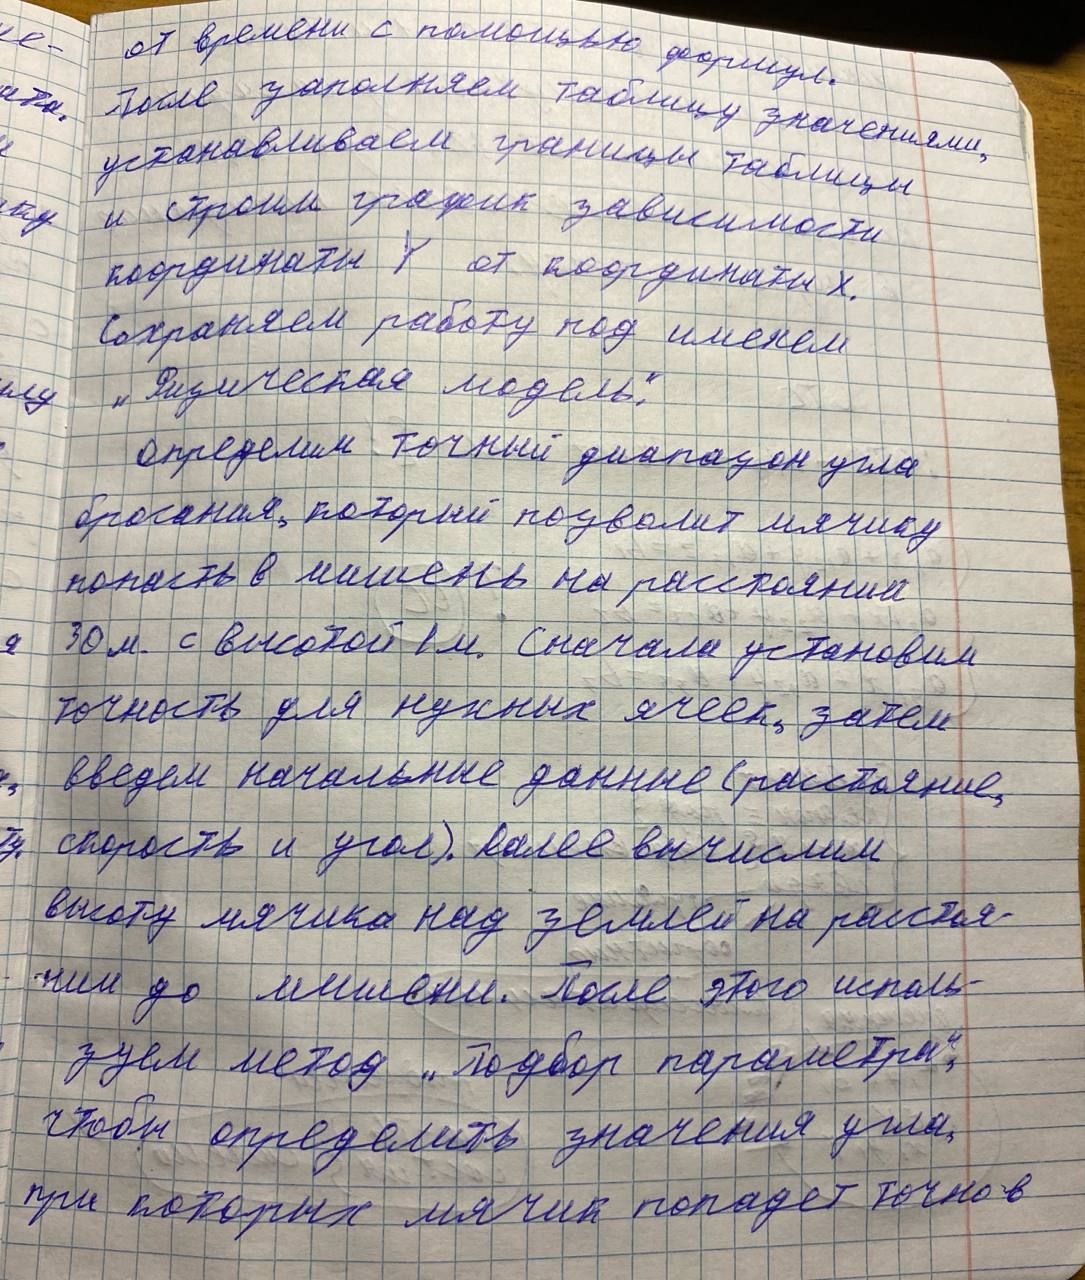 от времени с помощью формул.
После заполняем таблицу значениями,
устанавливаем границы таблицы
и строим график зависимости
координаты Y от координаты X.
Сохраняем работу под именем
„Физическая модель".
Определим точный диапазон угла
бросания, который позволит мячику
попасть в мишень на расстоянии
30 м. с высотой 1 м. Сначала установим
точность для нужных ячеек, затем
введем начальные данные (расстояние,
скорость и угол). Далее вычислим
высоту мячика над землей на расстоя-
нии до мишени. После этого исполь-
зуем метод „Подбор параметра",
чтобы определить значения угла,
при которых мячик попадет точно в